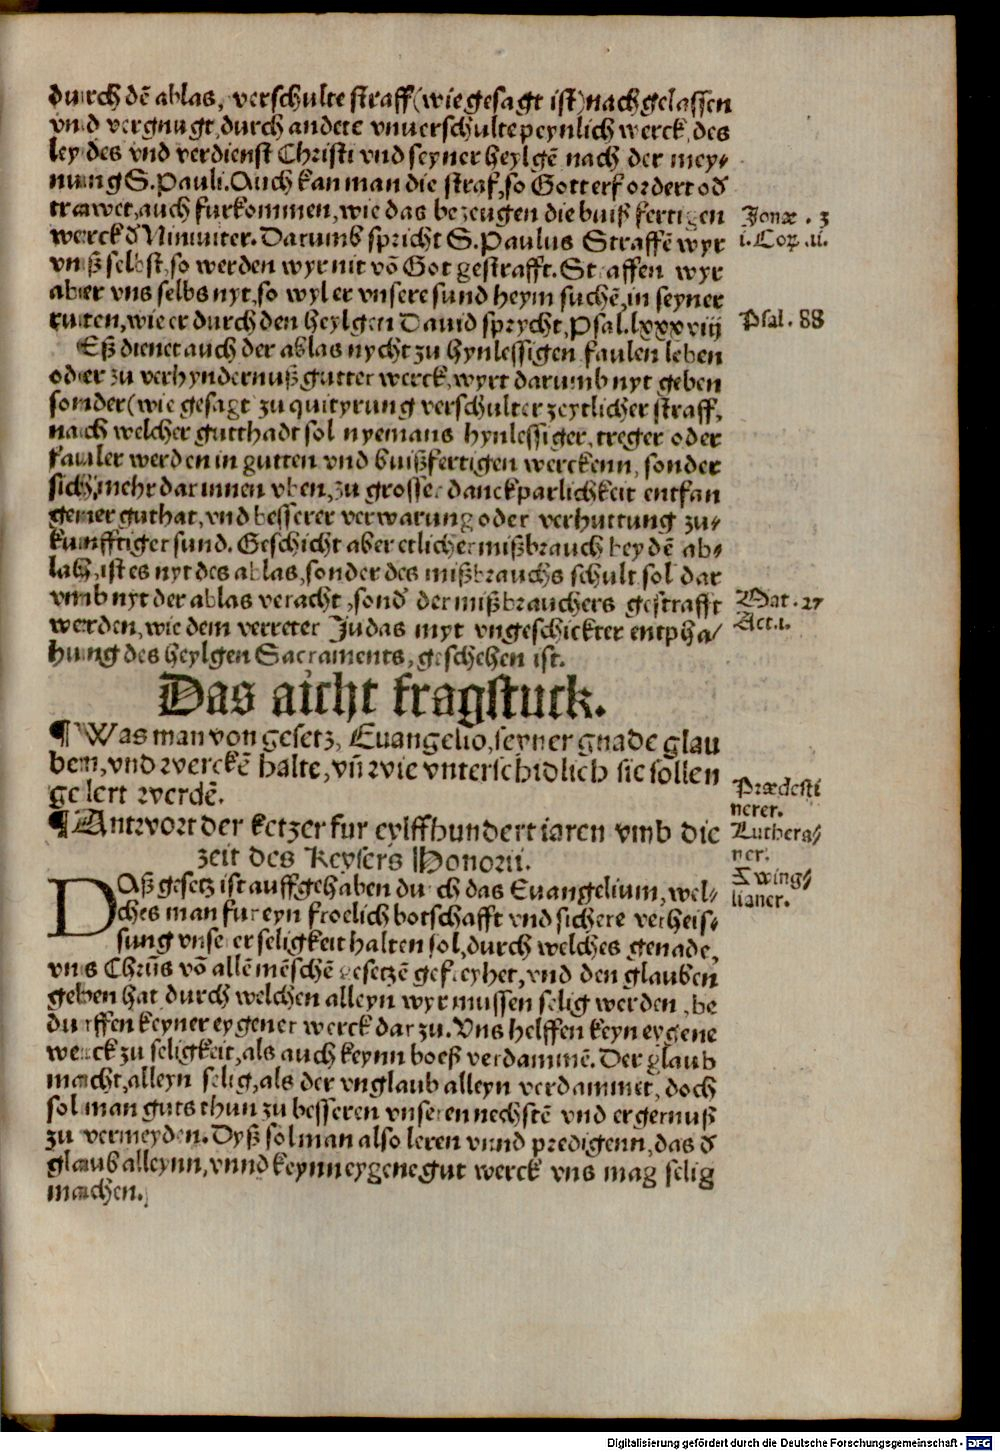 durch dẽ ablas, verschulte straff (wie gesagt ist) nachgelassen
vnd vergnugt, durch andere vnuerschulte peynlich werck, des
leydes vnd verdienst Christi vnd seyner heylgẽ nach der mey-
nung S. Pauli. Auch kan man die straf, so Got erfordert od̕
trawet, auch furkommen, wie das bezeugen die buißfertigen
werck d̕ Niniuiter. Darumb spricht S. Paulus Straffẽ wyr
vnß selbst, so werden wyr nit võ Got gestrafft. Straffen wyr
aber vns selbs nyt, so wyl er vnsere sund heym suchẽ, in seyner
rutten, wie er durch den heylgen Dauid sprycht, Psal. lxxxviij
Jonæ . 3
i. Coꝛ .ii.
Psal . 88
Eß dienet auch der ablas nycht zu hynlessigen faulen leben
oder zu verhyndernuß gutter werck, wyrt darumb nyt geben
sonder (wie gesagt zu quityrung verschulter zeytlicher straff,
nach welcher gutthadt sol nyemans hynlessiger, treger oder
fauler werden in gutten vnd buißfertigen werckenn, sonder
sich, mehr darinnen vben, zu grosser danckparlichkeit entfan
gener guthat, vnd besserer verwarung oder verhuttung zu-
kunfftiger sund. Geschicht aber etlicher mißbrauch bey dẽ ab-
laß, ist es nyt des ablas, sonder des mißbrauchs schult sol dar
vmb nyt der ablas veracht, sond̕ der mißbrauchers gestrafft
werden, wie dem verreter Judas myt vngeschickter entpha-
hung des heylgen Sacraments, geschehen ist.
Mat . 27
Act. i.
Das aicht fragstuck.
¶ Was man von gesetz, Euangelio, seyner gnade glau
ben, vnd werckẽ halte, vñ wie vnterschidlich sie sollen
gelert werdẽ.
¶ Antwort der ketzer fur eylffhundert iaren vmb die
zeit des Keysers Honorii.
Prædesti
nerer.
Luthera-
ner.
Zwing-
lianer.
Daß gesetz ist auffgehaben durch das Euangelium, wel-
ches man fur eyn froelich botschafft vnd sichere verheis-
sung vnserer seligkeit halten sol, durch welches genade,
vns Chrũs võ allẽ mẽschẽ gesetzẽ gefreyhet, vnd den glauben
geben hat durch welchen alleyn wyr mussen selig werden, be
durffen keyner eygener werck dar zu. Vns helffen keyn eygene
werck zu seligkeit, als auch keynn boeß verdammẽ. Der glaub
macht, alleyn selig, als der vnglaub alleyn verdammet, doch
sol man guts thun zu besseren vnseren nechstẽ vnd ergernuß
zu vermeyden. Dyß sol man also leren vnnd predigenn, das d̕
glaub alleynn, vnnd keynn eygene gut werck vns mag selig
machen.
Digitalisierung gefördert durch die Deutsche Forschungsgemeinschaft - DFG